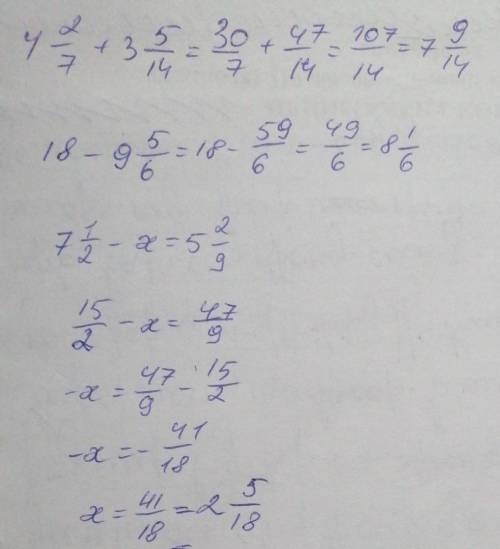 4 2/7 + 3 5/14 = 30/7 + 47/14 = 107/14 = 7 9/14
18 - 9 5/6 = 18 - 59/6 = 49/6 = 8 1/6
7 1/2 - x = 5 2/9
15/2 - x = 47/9
-x = 47/9 - 15/2
-x = - 41/18
x = 41/18 = 2 5/18